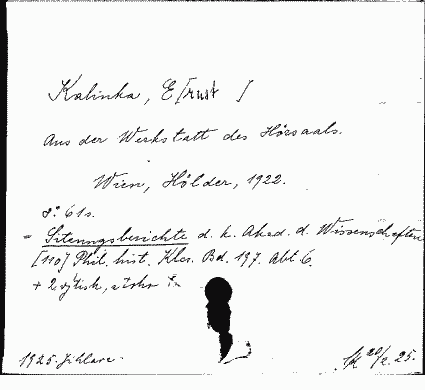 Kalinka, E[rnst ]
Aus der Werkstatt des Hörsaals.
Wien, Hölder, 1922.
8° 61 s.
= Sitzungsberichte d. k. Akad. d. Wissenschaften
[110] Phil. hist. Klas. Bd. 197. Abt 6.
+ 2
1925.
20/2. 25.